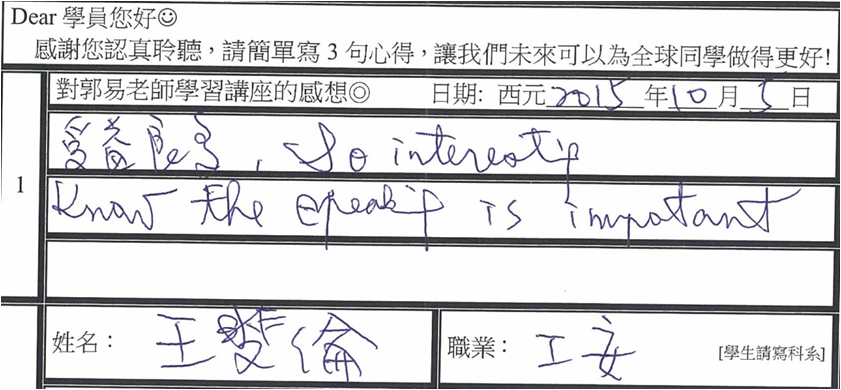 Dear 學員您好☺
感謝您認真聆聽，請簡單寫 3 句心得，讓我們未來可以為全球同學做得更好!
1
對郭易老師學習講座的感想◎ 日期: 西元 2015 年 10 月 5 日
受益良多, So interestip
Know the speakip is impotant
姓名： 王 倫 職業： 工安 [學生請寫科系]